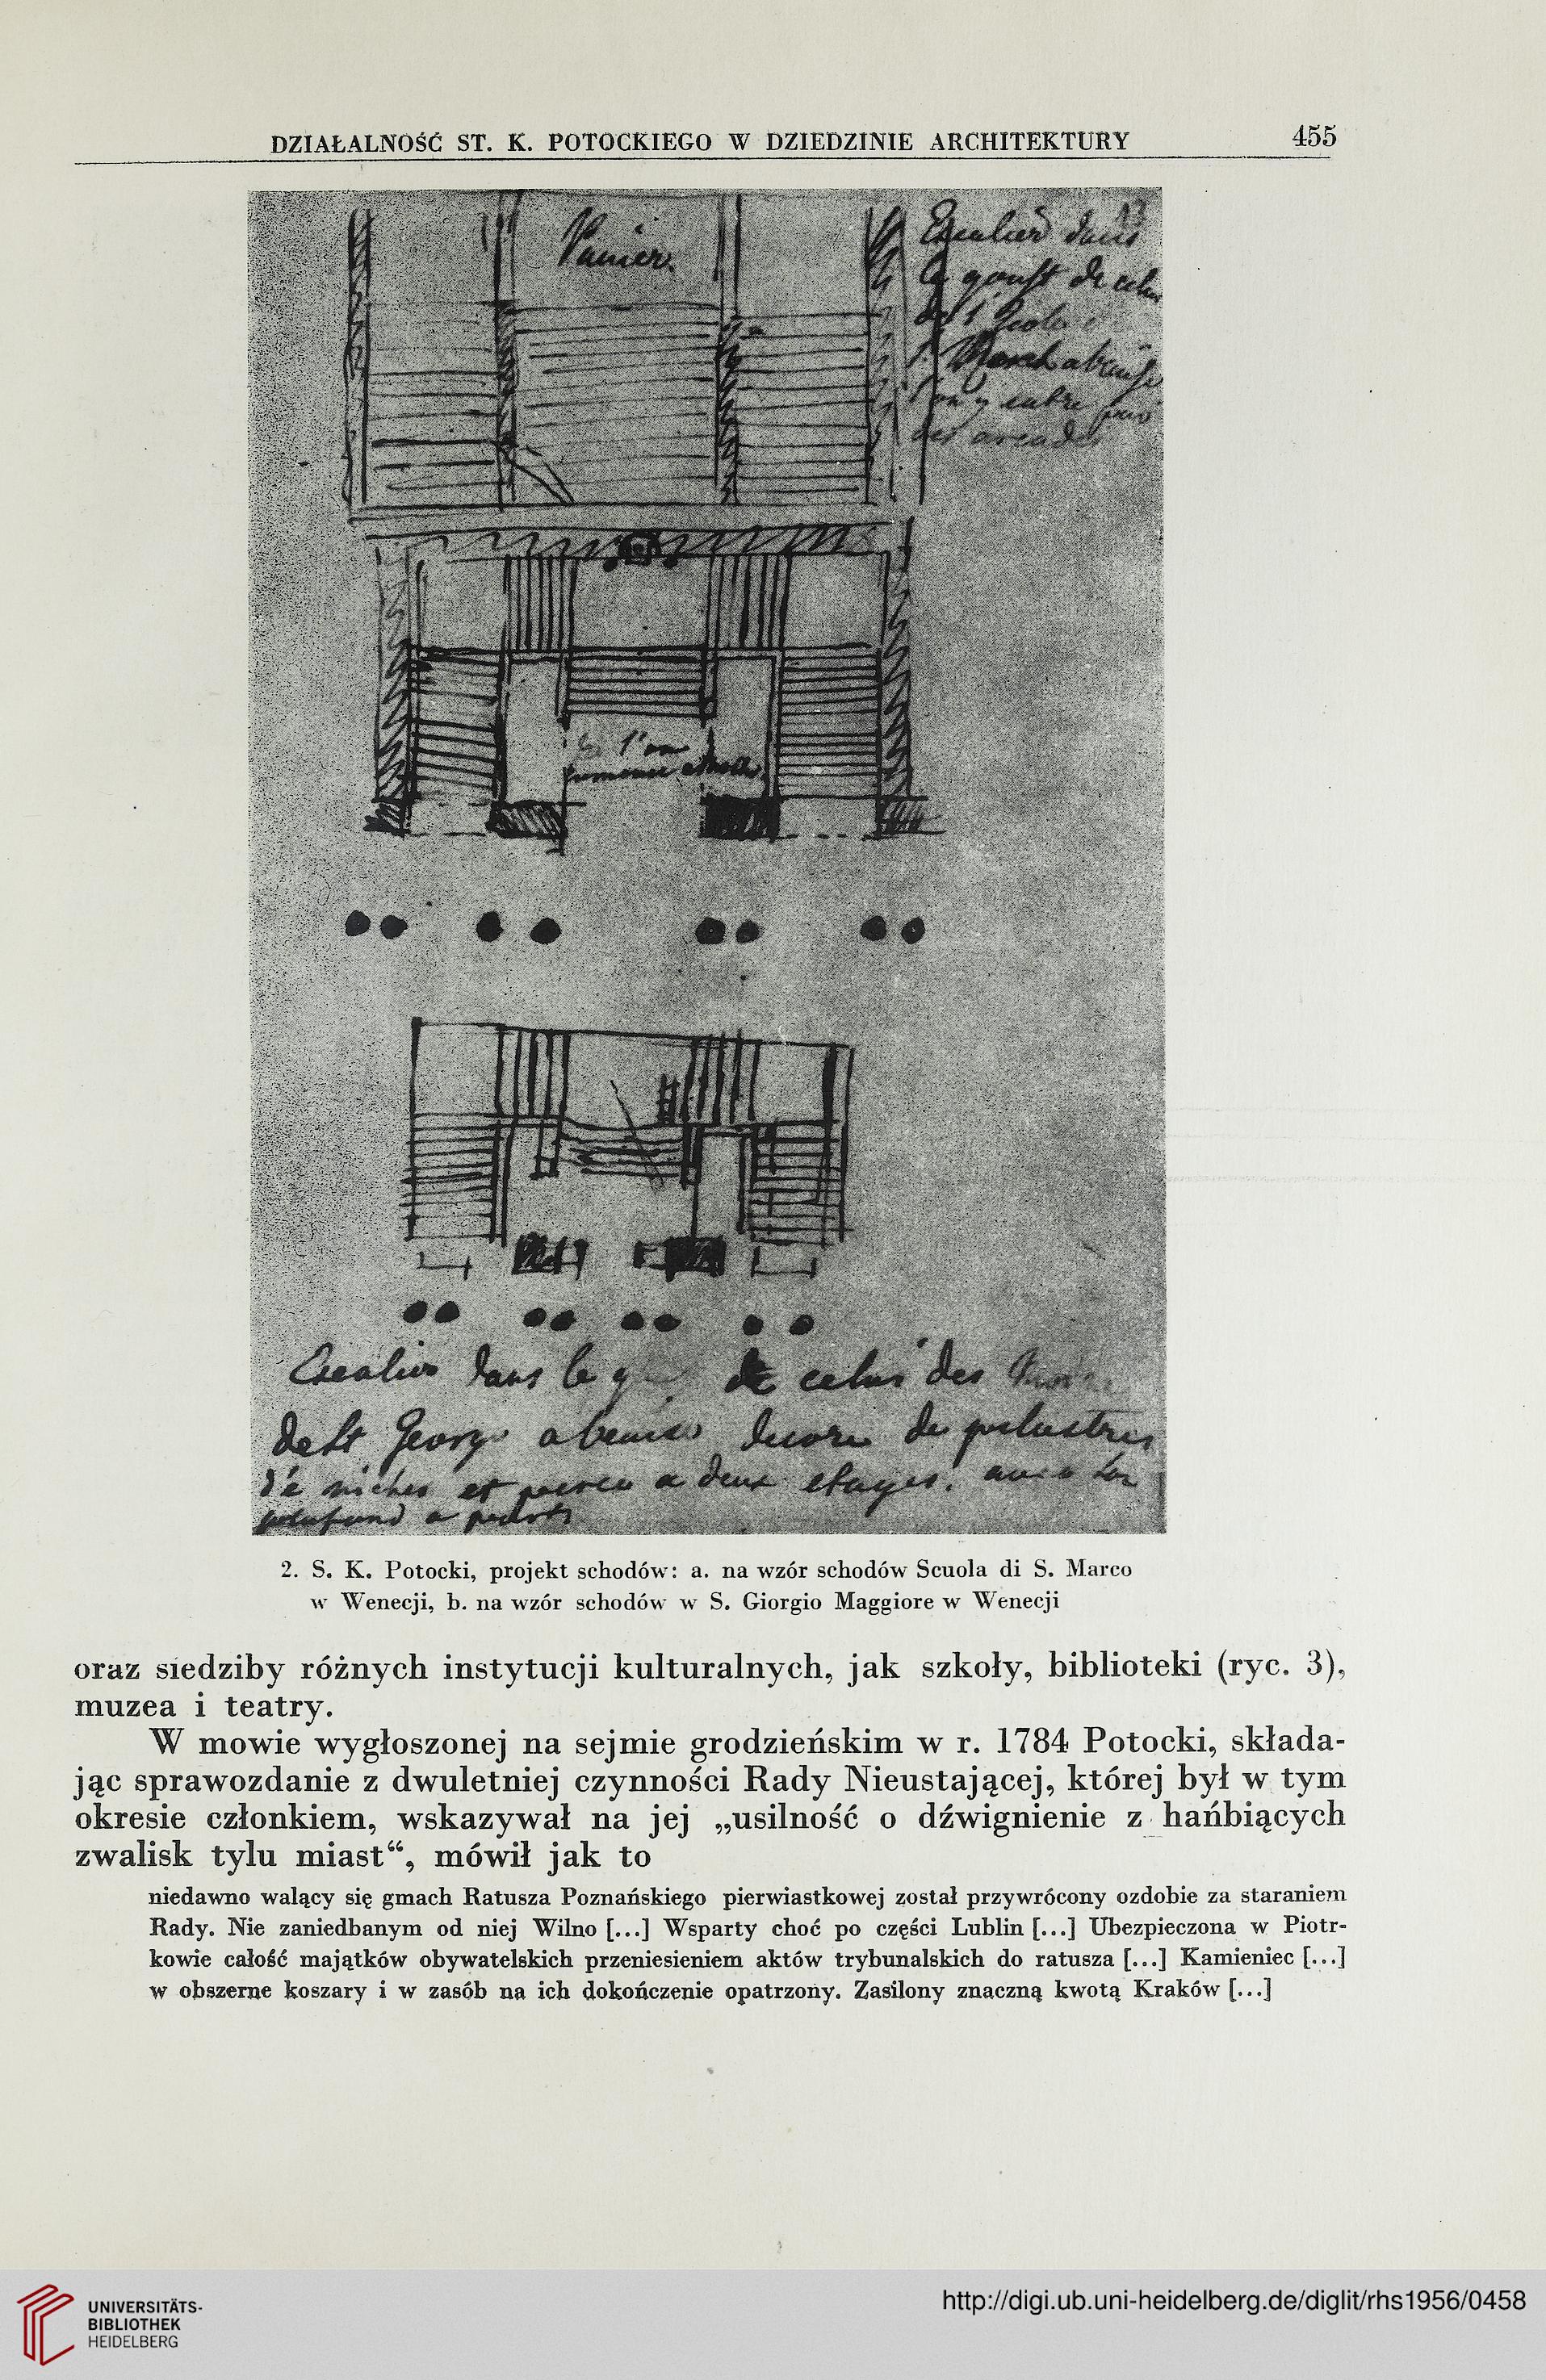 DZIAŁALNOŚĆ ST. K. POTOCKIEGO W DZIEDZINIE ARCHITEKTURY 455
Escalier dans
le goust de celui
de l'
l'on y entre par
des arcades
l'on
Escalier dans le de celui des
de St George a Venise decore de pilastres
de niches et a deux etages. avec son
2. S. K. Potocki, projekt schodów: a. na wzór schodów Scuola di S. Marco
w Wenecji, b. na wzór schodów w S. Giorgio Maggiore w Wenecji
oraz siedziby różnych instytucji kulturalnych, jak szkoły, biblioteki (ryc. 3),
muzea i teatry.
W mowie wygłoszonej na sejmie grodzieńskim w r. 1784 Potocki, składa-
jąc sprawozdanie z dwuletniej czynności Rady Nieustającej, której był w tym
okresie członkiem, wskazywał na jej „usilność o dźwignienie z hańbiących
zwalisk tylu miast“, mówił jak to
niedawno walący się gmach Ratusza Poznańskiego pierwiastkowej został przywrócony ozdobie za staraniem
Rady. Nie zaniedbanym od niej Wilno [...] Wsparty choć po części Lublin [...] Ubezpieczona w Piotr-
kowie całość majątków obywatelskich przeniesieniem aktów trybunalskich do ratusza [...] Kamieniec [...]
w obszerne koszary i w zasób na ich dokończenie opatrzony. Zasilony znaczną kwotą Kraków [...]
UNIVERSITÄTS-
BIBLIOTHEK
HEIDELBERG
http://digi.ub.uni-heidelberg.de/diglit/rhs1956/0458